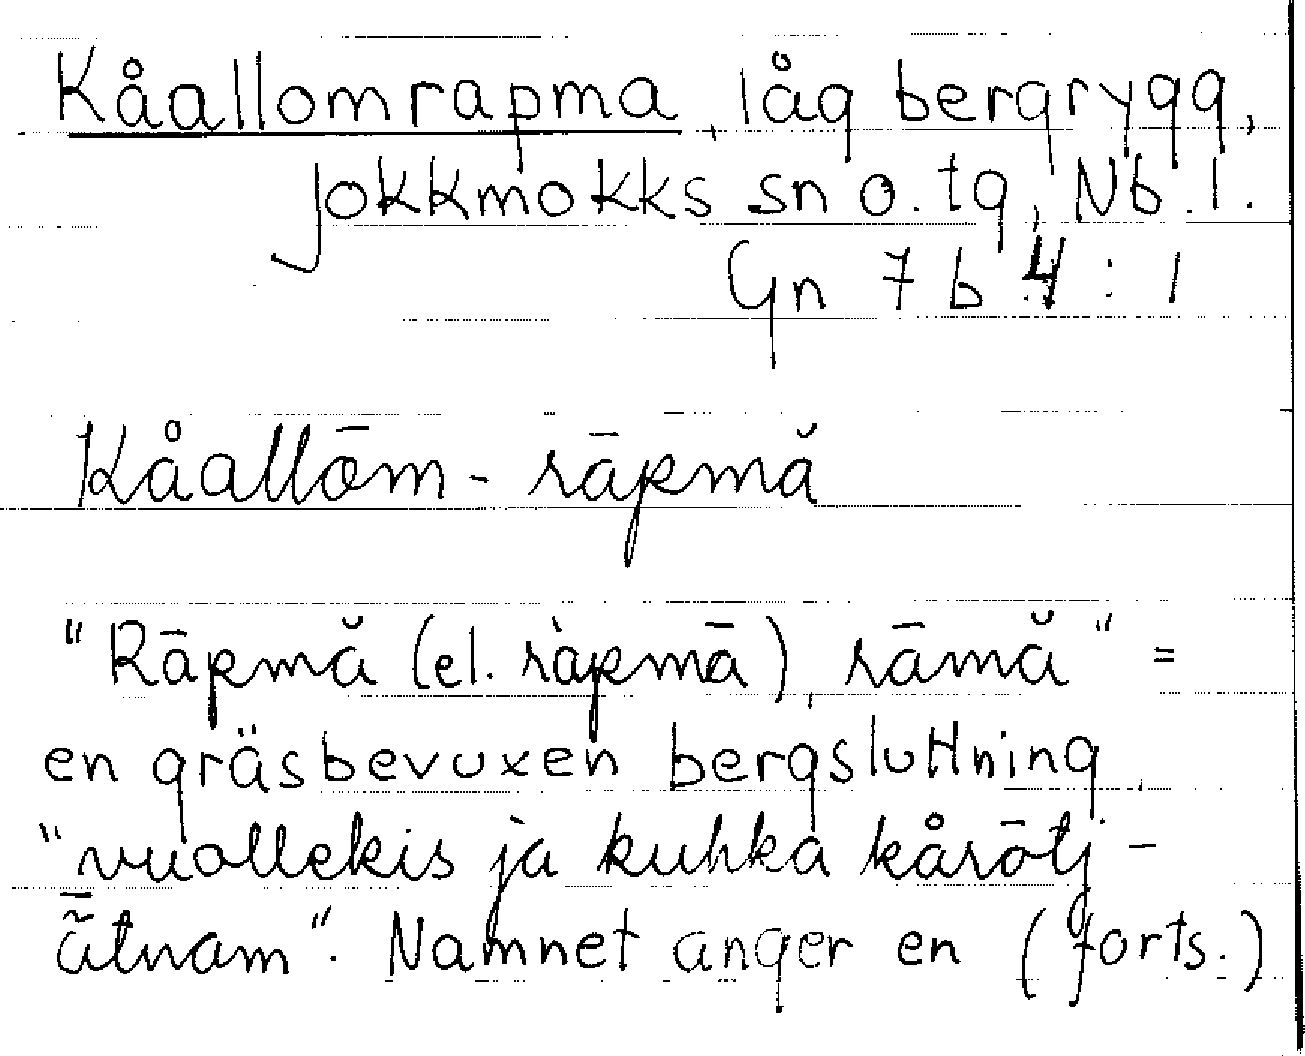 Kåallomrapma, låg bergrygg,
Jokkmokks sn o. tg, Nb. l.
Gn 7 b 4 : 1
Kåallōm - rāpmă
"Rāpmă (el. ràpmā), rāmă" =
en gräsbevuxen bergsluttning,
"vuollekis ja kuhka kårōtj -
ätnam". Namnet anger en (forts.)